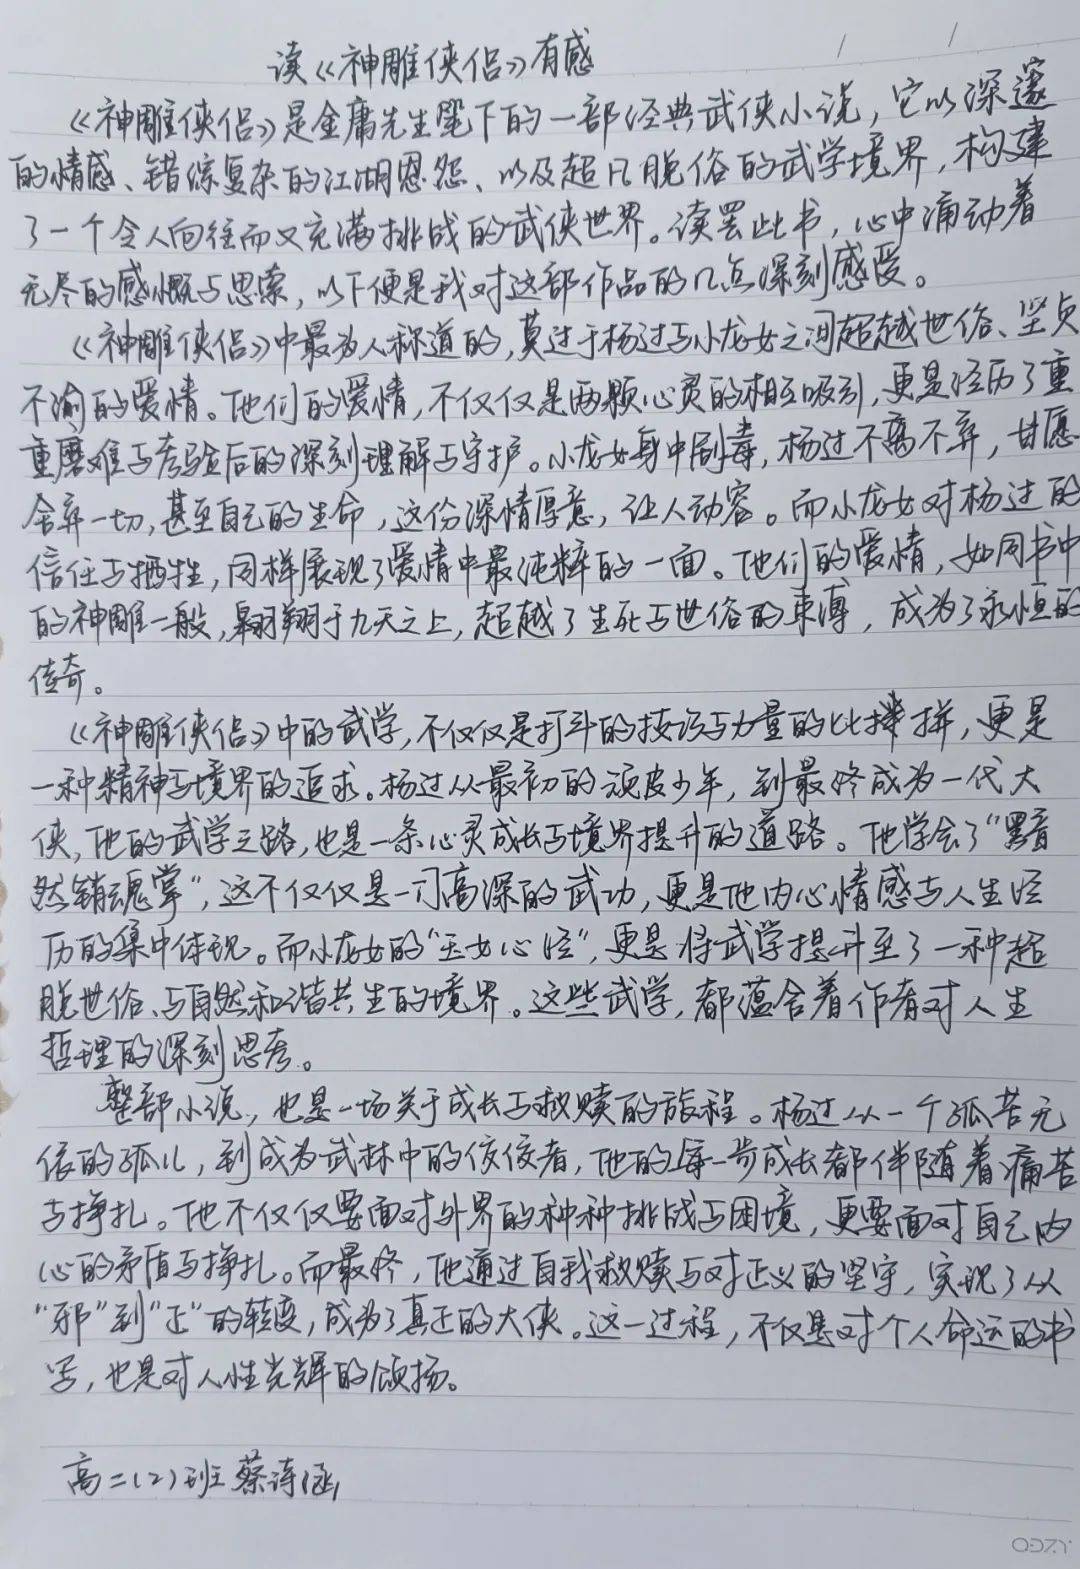 读《神雕侠侣》有感
《神雕侠侣》是金庸先生笔下的一部经典武侠小说，它以深邃
的情感、错综复杂的江湖恩怨、以及超凡脱俗的武学境界，构建
了一个令人向往而又充满挑战的武侠世界。读罢此书，心中涌动着
无尽的感慨与思索，以下便是我对这部作品的几点深刻感受。
《神雕侠侣》中最为人称道的，莫过于杨过与小龙女之间超越世俗、坚贞
不渝的爱情。他们的爱情，不仅仅是两颗心灵的相互吸引，更是经历了重
重磨难与考验后的深刻理解与守护。小龙女身中剧毒，杨过不离不弃，甘愿
舍弃一切，甚至自己的生命，这份深情厚意，让人动容。而小龙女对杨过的
信任与牺牲，同样展现了爱情中最纯粹的一面。他们的爱情，如同书中
的神雕一般，翱翔于九天之上，超越了生死与世俗的束缚，成为了永恒的
传奇。
《神雕侠侣》中的武学，不仅仅是打斗的技巧与力量的比拼，更是
一种精神与境界的追求。杨过从最初的顽皮少年，到最终成为一代大
侠，他的武学之路，也是一条心灵成长与境界提升的道路。他学会了“黯
然销魂掌”，这不仅仅是一门高深的武功，更是他内心情感与人生经
历的集中体现。而小龙女的“玉女心经”，更是将武学提升至了一种超
脱世俗、与自然和谐共生的境界。这些武学，都蕴含着作者对人生
哲理的深刻思考。
整部小说，也是一场关于成长与救赎的旅程。杨过从一个孤苦无
依的孤儿，到成为武林中的佼佼者，他的每一步成长都伴随着痛苦
与挣扎。他不仅仅要面对外界的种种挑战与困境，更要面对自己内
心的矛盾与挣扎。而最终，他通过自我救赎与对正义的坚守，实现了从
“邪”到“正”的转变，成为了真正的大侠。这一过程，不仅是对个人命运的书
写，也是对人性光辉的颂扬。
高二（2）班 蔡诗涵